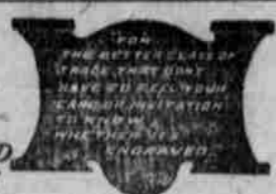 FOR
THE BETTER CLASS OF
TRADE THAT DON'T
HAVE TO FEEL YOUR
CARD OR INVITATION
TO KNOW
WHETHER IT'S
ENGRAVED